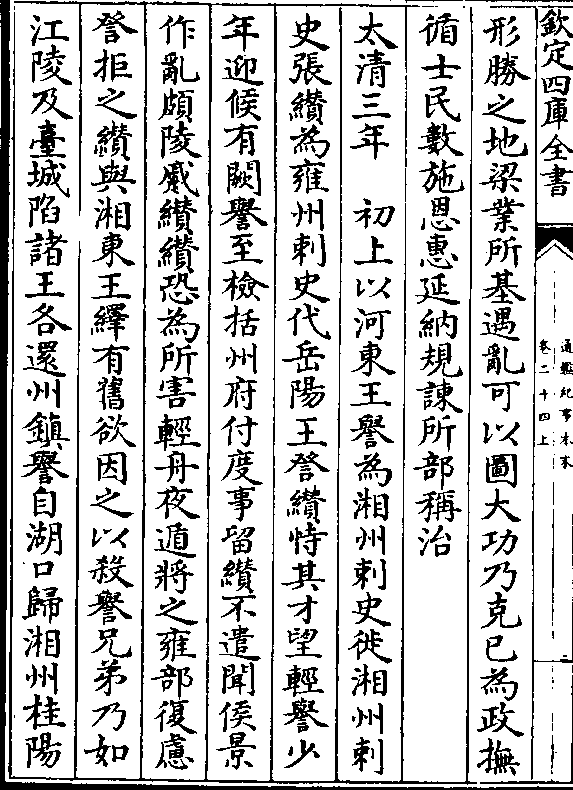 欽定四庫全書
通鑑紀事本末
卷二十四上
形勝之地梁業所基遇亂可以圖大功乃克已為政撫
循士民數施恩惠延納規諫所部稱治
太清三年　初上以河東王譽為湘州刺史徙湘州刺
史張纘為雍州刺史代岳陽王詧纘恃其才望輕譽少
年迎候有闕譽至檢括州府付度事留纘不遣聞侯景
作亂頗陵蹙纘纘恐為所害輕舟夜遁將之雍部復慮
詧拒之纘與湘東王繹有舊欲因之以殺譽兄弟乃如
江陵及臺城陷諸王各還州鎮譽自湖口歸湘州桂陽